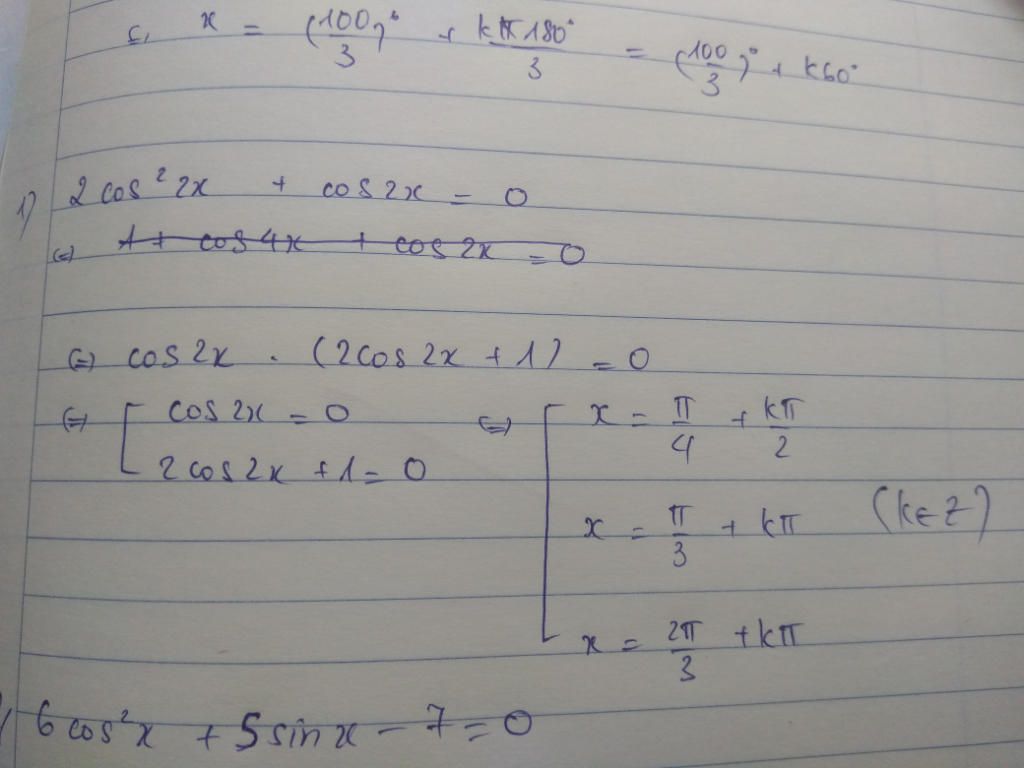 c, x = (100/3)° + kπ180°/3 = (100/3)° + k60°
1) 2cos²2x + cos2x = 0
(=) 1 + cos4x + cos2x = 0
(=) cos2x . (2cos2x + 1) = 0
(=) [ cos2x = 0 (=) [ x = π/4 + kπ/2
2cos2x + 1 = 0
x = π/3 + kπ (k∈Z)
x = 2π/3 + kπ
6cos²x + 5sinx - 7 = 0